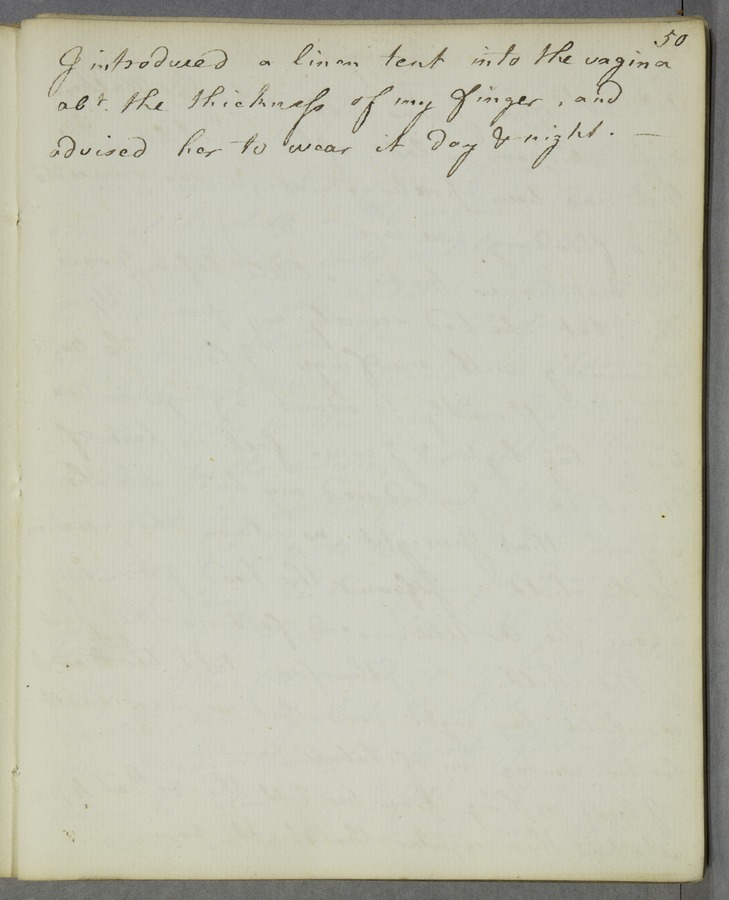 50
I introduced a linen tent into the vagina
abt. the thickness of my finger, and
advised her to wear it day & night. —